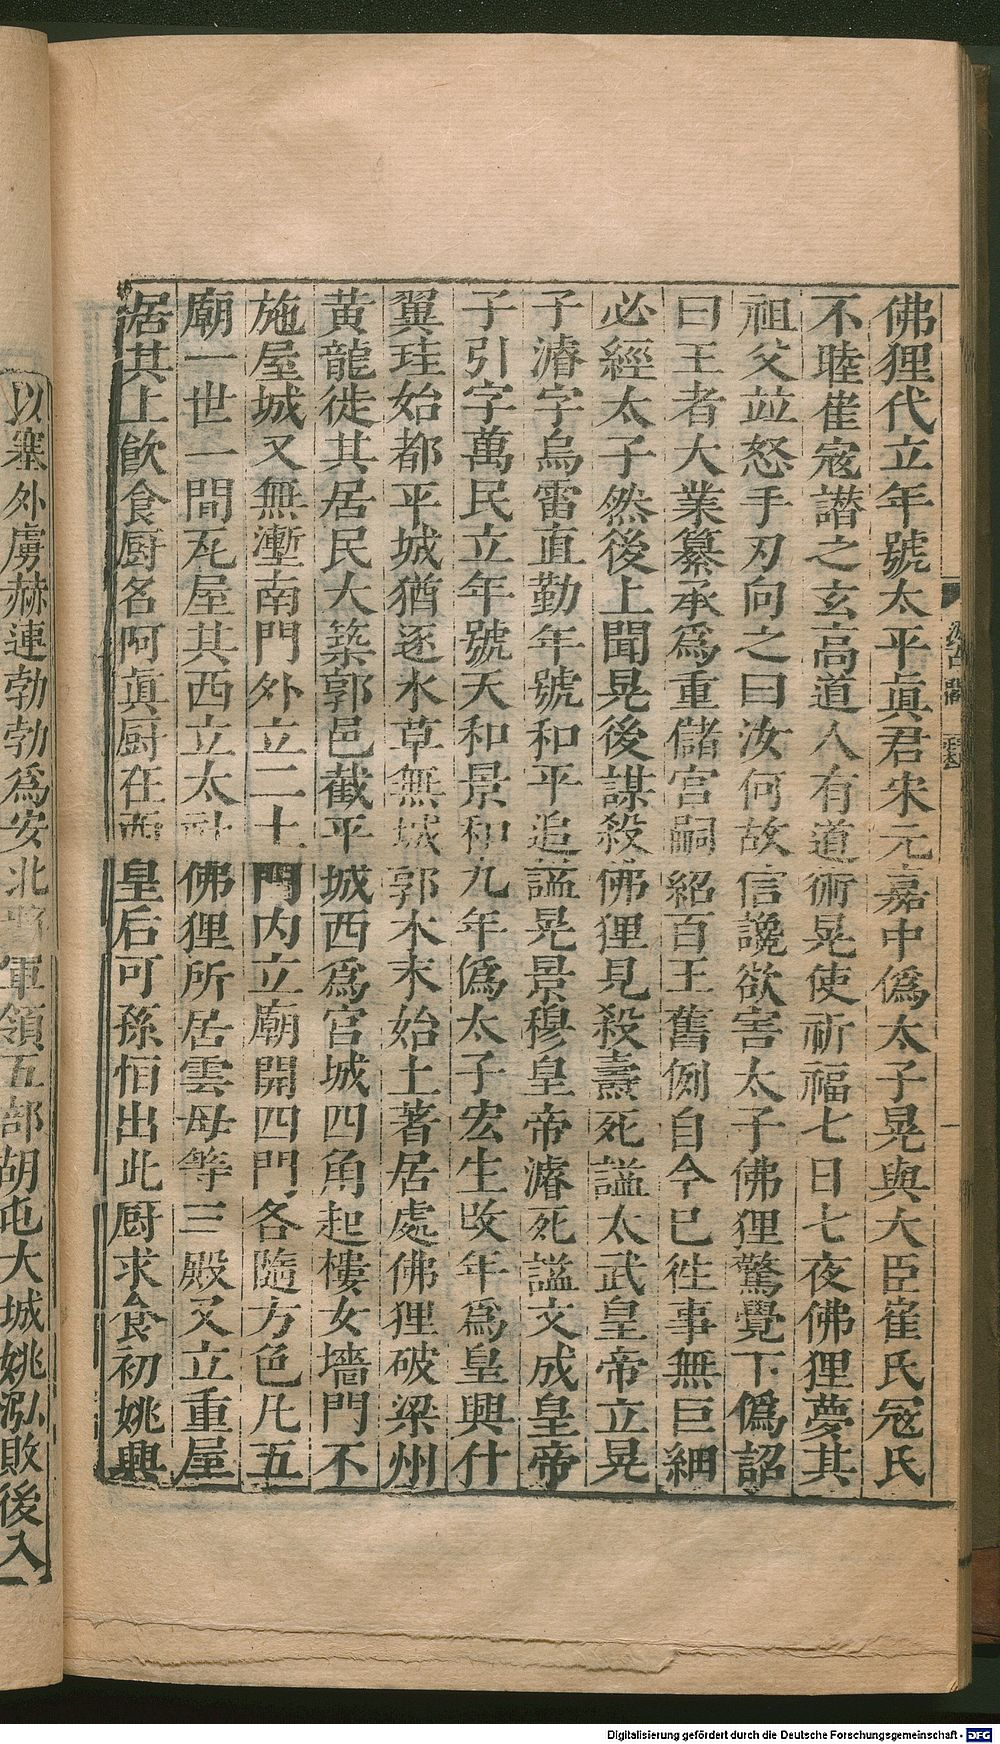 佛狸代立年號太平眞君宋元嘉中僞太子晃與大臣崔氏寇氏
不睦崔寇譖之玄高道人有道術晃使祈福七日七夜佛狸夢其
祖父竝怒手刃向之曰汝何故信讒欲害太子佛狸驚覺下僞詔
曰王者大業纂承爲重儲宮嗣紹百王舊例自今已徃事無巨細
必經太子然後上聞晃後謀殺佛狸見殺壽死謚太武皇帝立晃
子濬字烏雷直勤年號和平追謚晃景穆皇帝濬死謚文成皇帝
子引字萬民立年號天和景和九年僞太子宏生改年爲皇興什
翼珪始都平城猶逐水草無城郭木末始土著居處佛狸破梁州
黃龍徙其居民大築郭邑截平城西爲宮城四角起樓女墻門不
施屋城又無壍南門外立二土門内立廟開四門各隨方色凡五
廟一世一間瓦屋其西立太社佛狸所居雲母等三殿又立重屋
居其上飮食厨名阿眞厨在西皇后可孫恒出此厨求食初姚興
以塞外虜赫連勃勃爲安北將軍領五部胡屯大城姚泓敗後入
汲古閣
Digitalisierung gefördert durch die Deutsche Forschungsgemeinschaft - DFG